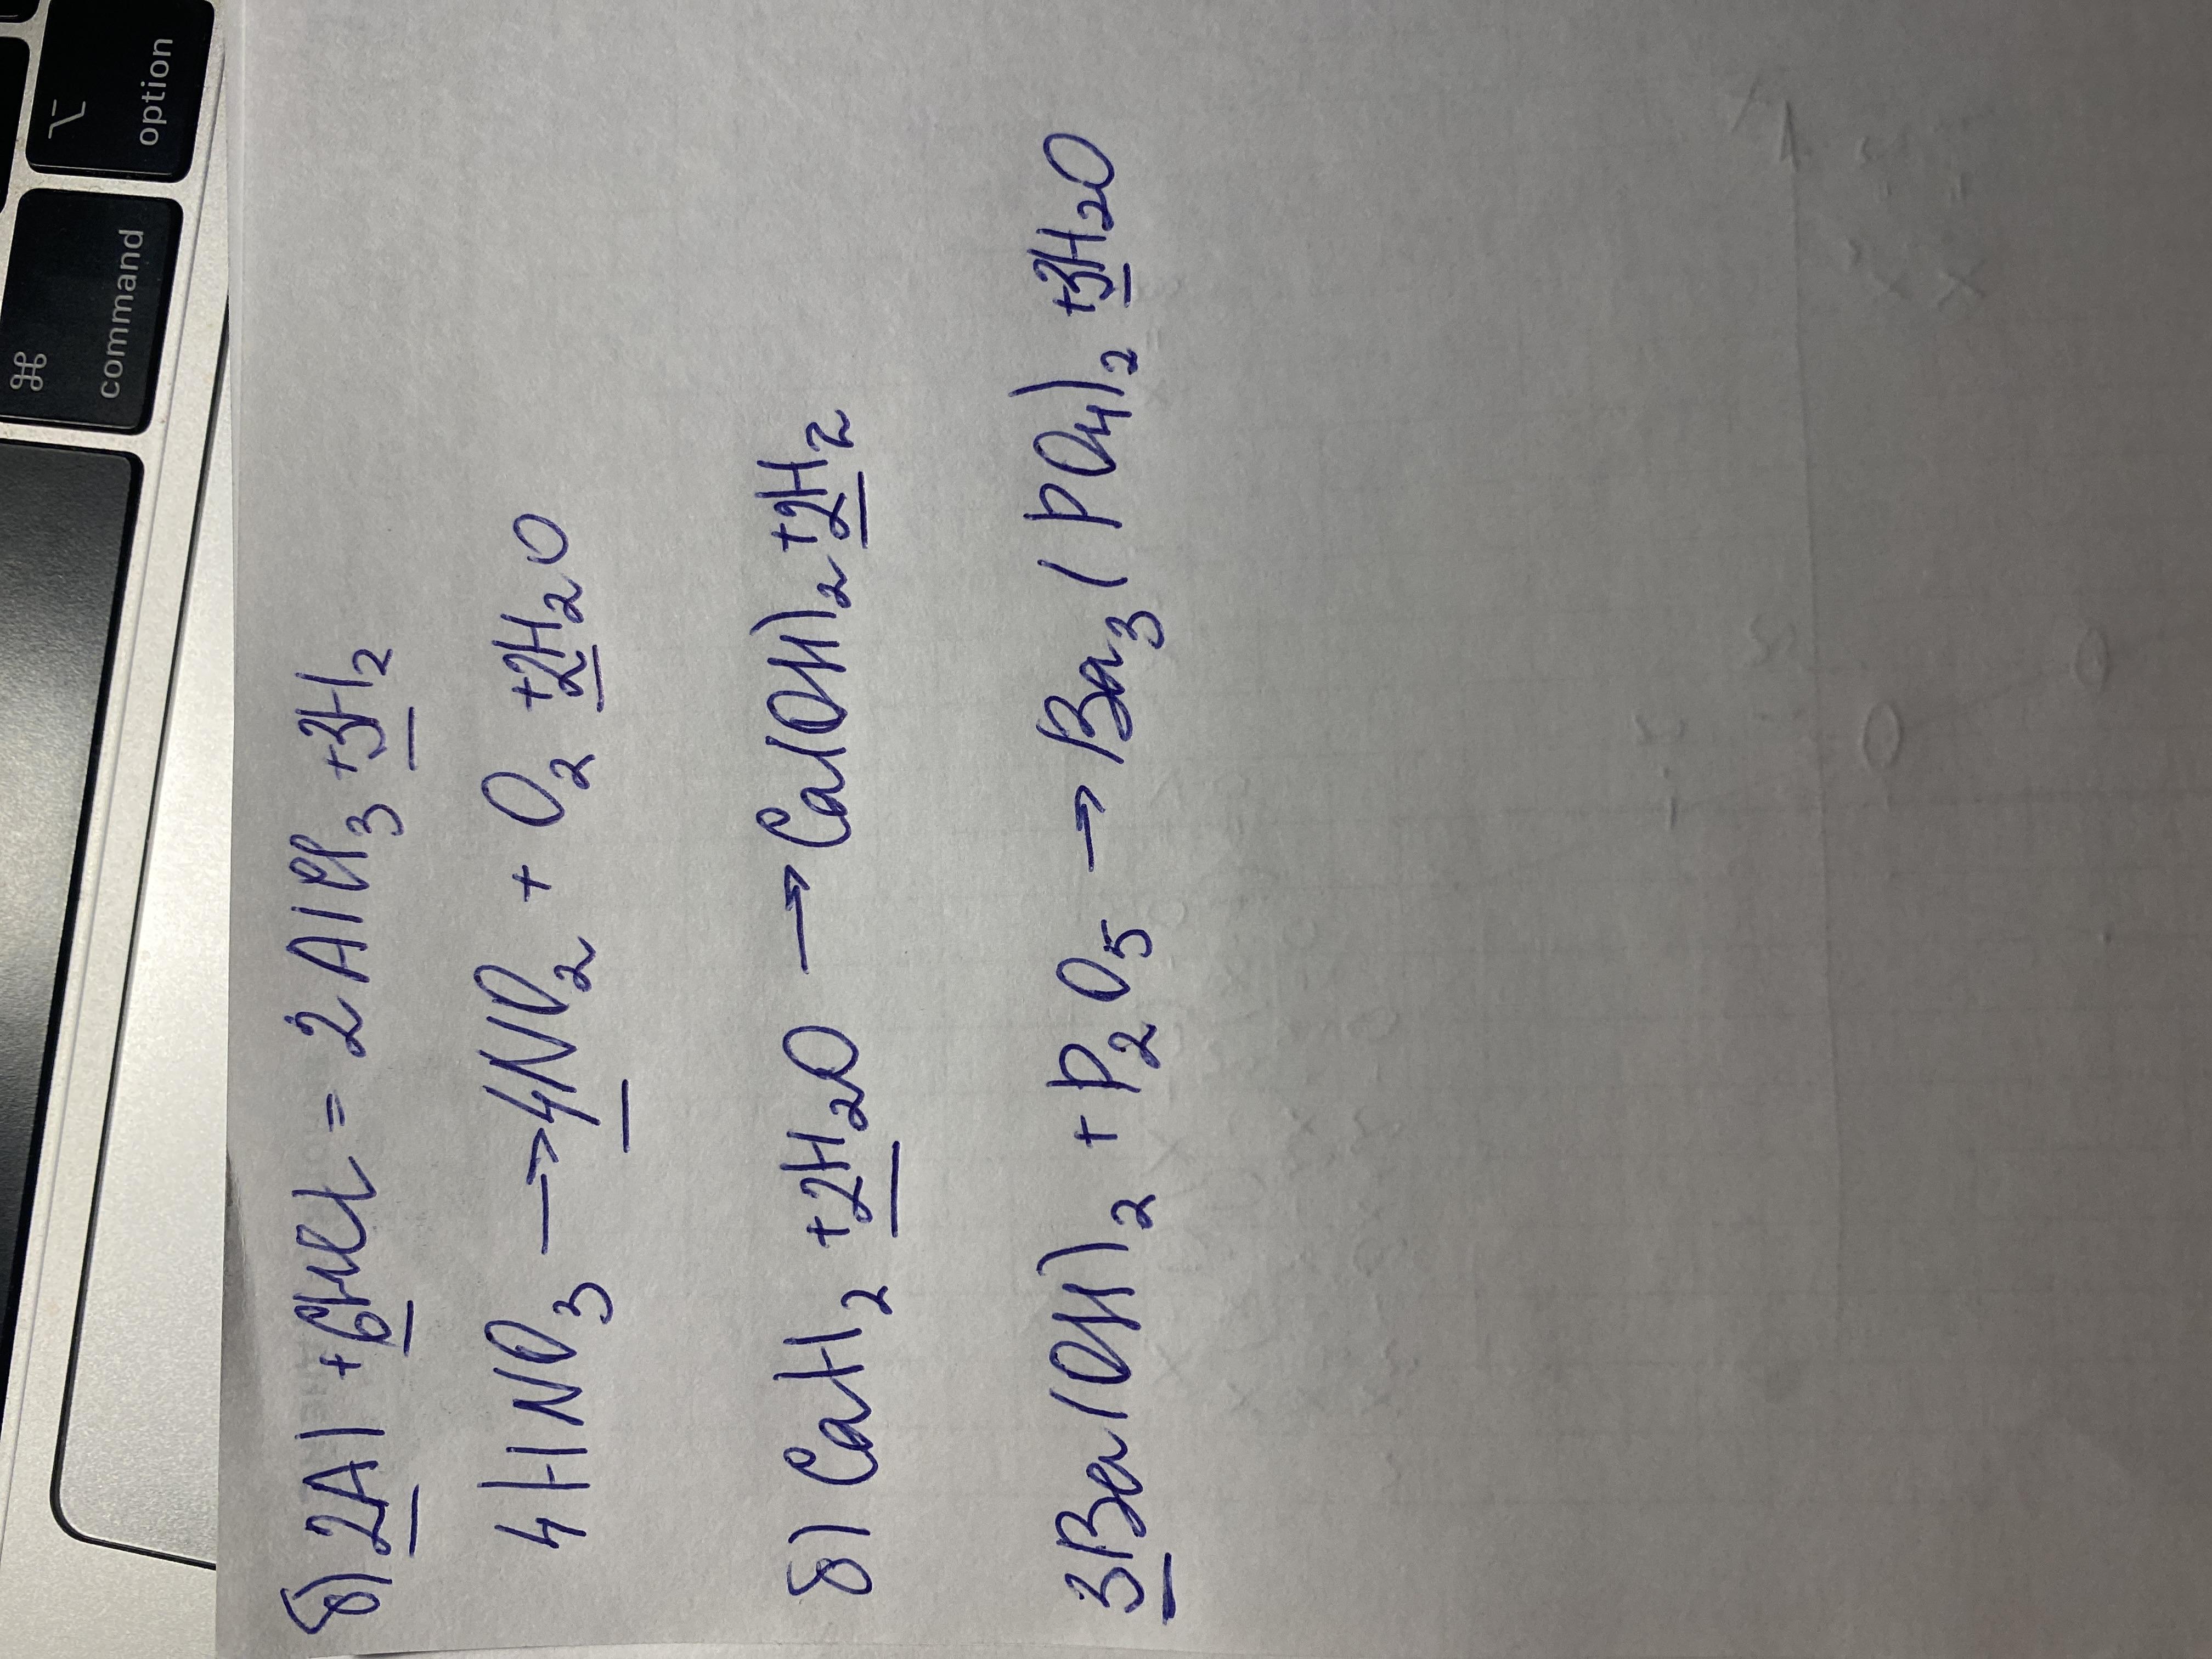 ⌥
option
⌘
command
б) 2Al + 6HCl = 2AlCl₃ + 3H₂
4HNO₃ → 4NO₂ + O₂ + 2H₂O
б) CaH₂ + 2H₂O → Ca(OH)₂ + 2H₂
3Ba(OH)₂ + P₂O₅ → Ba₃(PO₄)₂ + 3H₂O